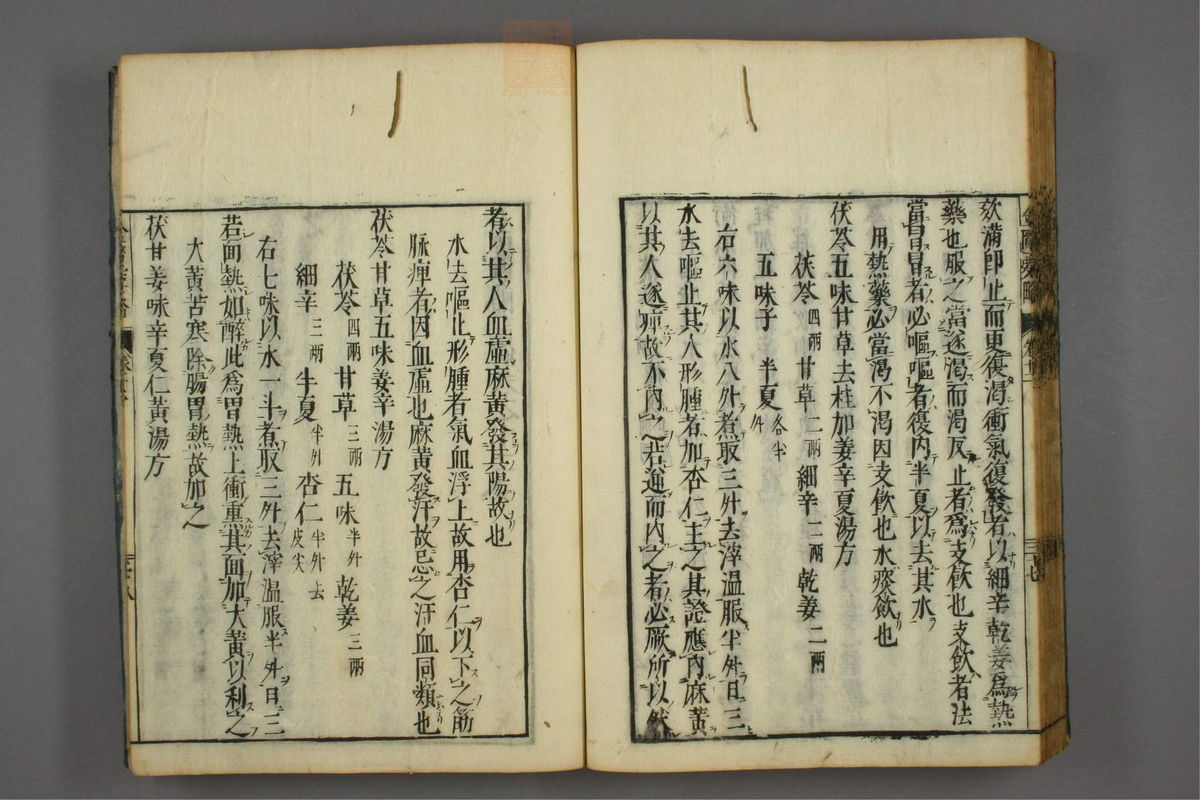 欬滿即止而更復渴衝氣復發者以細辛乾姜爲熱
藥也服之當遂渴而渴反止者爲支飲也支飲者法
當冒冒者必嘔嘔者復内半夏以去其水
用熱藥必當渴不渴因支飲也水痰飲也
茯苓五味甘草去桂加姜辛夏湯方
茯苓四兩 甘草二兩 細辛二兩 乾姜二兩
五味子 半夏各半升
右六味以水八升煮取三升去滓温服半升日三
水去嘔止其人形腫者加杏仁主之其證應内麻黄
以其人遂痺故不内之若逆而内之者必厥所以然
者以其人血虛麻黄發其陽故也
水去嘔止形腫者氣血浮上故用杏仁以下之筋
脉痺者因血虛也麻黄發汗故忌之汗血同類也
茯苓甘草五味姜辛湯方
茯苓四兩 甘草三兩 五味半升 乾姜三兩
細辛三兩 半夏半升 杏仁半升去皮尖
右七味以水一斗煮取三升去滓温服半升日三
若面熱如醉此爲胃熱上衝熏其面加大黄以利之
大黄苦寒除腸胃熱故加之
茯甘姜味辛夏仁黄湯方
三十七
三十八